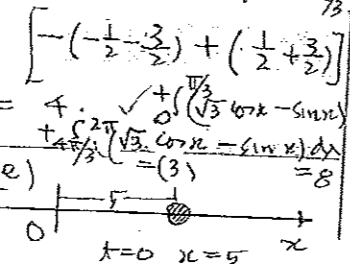 73.
[-(-1/2 - 3/2) + (1/2 + 3/2)]
= 4. ✓ + ∫₀^{π/3} (√3 cos x - sin x)
+ ∫_{4π/3}^{2π} (√3 cos x - sin x) dx
= (3) = 8
e)
5
0 x
t=0 x=5